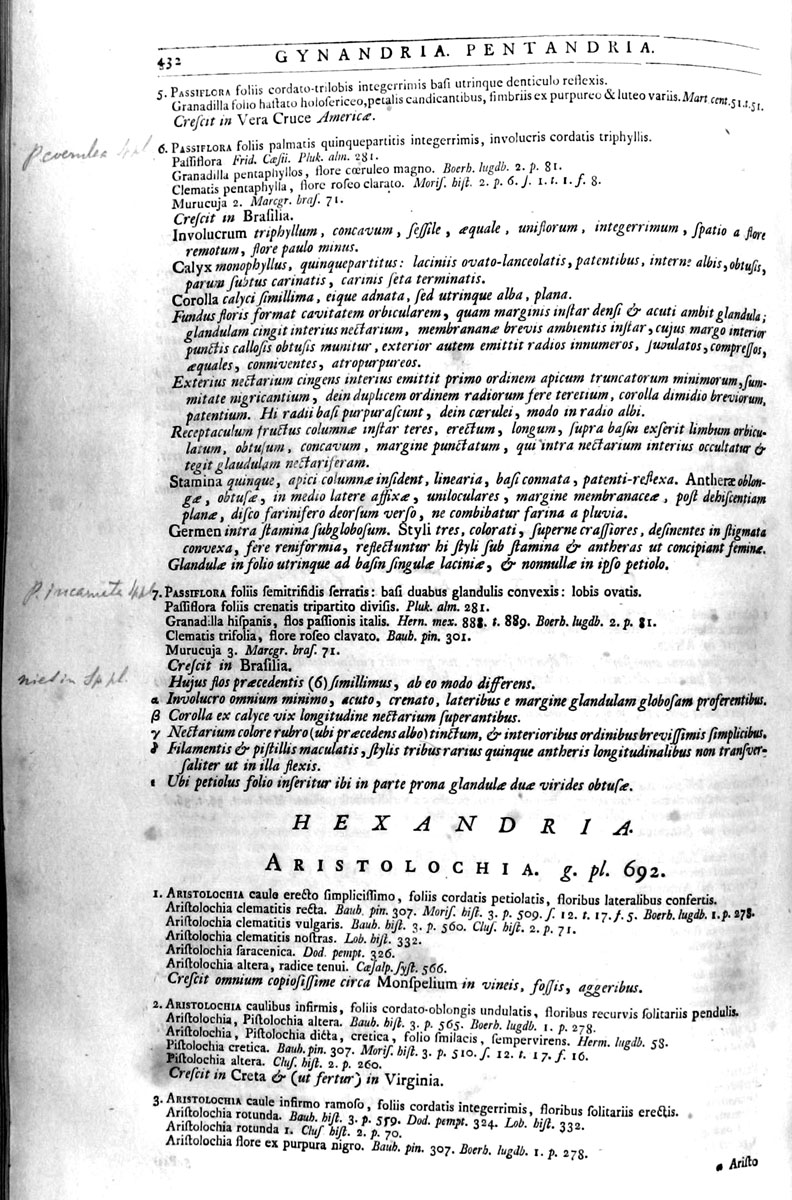 432 GYNANDRIA. PENTANDRIA.
5. PASSIFLORA foliis cordato-trilobis integerrimis basi utrinque denticulo reflexis.
Granadilla folio hastato holosericeo, petalis candicantibus, fimbriis ex purpureo & luteo variis. Mart cent. 51. t. 51.
Crescit in Vera Cruce Americæ.
P. coerulea Sp pl.
6. PASSIFLORA foliis palmatis quinquepartitis integerrimis, involucris cordatis triphyllis.
Passiflora Frid. Cæsii. Pluk. alm. 281.
Granadilla pentaphyllos, flore cœruleo magno. Boerh. lugdb. 2. p. 81.
Clematis pentaphylla, flore roseo clarato. Moris. hist. 2. p. 6. s. 1. t. 1. f. 8.
Murucuja 2. Marcgr. bras. 71.
Crescit in Brasilia.
Involucrum triphyllum, concavum, sessile, æquale, uniflorum, integerrimum, spatio a flore
remotum, flore paulo minus.
Calyx monophyllus, quinquepartitus: laciniis ovato-lanceolatis, patentibus, interne albis, obtusis,
parum subtus carinatis, carinis seta terminatis.
Corolla calyci simillima, eique adnata, sed utrinque alba, plana.
Fundus floris format cavitatem orbicularem, quam marginis instar densi & acuti ambit glandula;
glandulam cingit interius nectarium, membrananæ brevis ambientis instar, cujus margo interior
punctis callosis obtusis munitur, exterior autem emittit radios innumeros, subulatos, compressos,
æquales, conniventes, atropurpureos.
Exterius nectarium cingens interius emittit primo ordinem apicum truncatorum minimorum, sum-
mitate nigricantium, dein duplicem ordinem radiorum fere teretium, corolla dimidio breviorum,
patentium. Hi radii basi purpurascunt, dein cærulei, modo in radio albi.
Receptaculum fructus columnæ instar teres, erectum, longum, supra basin exserit limbum orbicu-
latum, obtusum, concavum, margine punctatum, qui intra nectarium interius occultatur &
tegit glandulam nectariferam.
Stamina quinque, apici columnæ insident, linearia, basi connata, patenti-reflexa. Antheræ oblon-
gæ, obtusæ, in medio latere affixæ, uniloculares, margine membranaceæ, post dehiscentiam
planæ, disco farinifero deorsum verso, ne combibatur farina a pluvia.
Germen intra stamina subglobosum. Styli tres, colorati, superne crassiores, desinentes in stigmata
convexa, fere reniformia, reflectuntur hi styli sub stamina & antheras ut concipiant feminæ.
Glandulæ in folio utrinque ad basin singulæ laciniæ, & nonnullæ in ipso petiolo.
P. incarnata Sp pl.
7. PASSIFLORA foliis semitrifidis serratis: basi duabus glandulis convexis: lobis ovatis.
Passiflora foliis crenatis tripartito divisis. Pluk. alm. 281.
Granadilla hispanis, flos passionis italis. Hern. mex. 888. t. 889. Boerh. lugdb. 2. p. 81.
Clematis trifolia, flore roseo clavato. Bauh. pin. 301.
Murucuja 3. Marcgr. bras. 71.
Crescit in Brasilia.
Hujus flos præcedentis (6) simillimus, ab eo modo differens.
α Involucro omnium minimo, acuto, crenato, lateribus e margine glandulam globosam proferentibus.
β Corolla ex calyce vix longitudine nectarium superantibus.
γ Nectarium colore rubro (ubi præcedens albo) tinctum, & interioribus ordinibus brevissimis simplicibus.
δ Filamentis & pistillis maculatis, stylis tribus rarius quinque antheris longitudinalibus non transver-
saliter ut in illa flexis.
ε Ubi petiolus folio inseritur ibi in parte prona glandulæ duæ virides obtusæ.
HEXANDRIA.
ARISTOLOCHIA. g. pl. 692.
1. ARISTOLOCHIA caule erecto simplicissimo, foliis cordatis petiolatis, floribus lateralibus confertis.
Aristolochia clematitis recta. Bauh. pin. 307. Moris. hist. 3. p. 509. s. 12. t. 17. f. 5. Boerh. lugdb. 1. p. 278.
Aristolochia clematitis vulgaris. Bauh. hist. 3. p. 560. Clus. hist. 2. p. 71.
Aristolochia clematitis nostras. Lob. hist. 332.
Aristolochia saracenica. Dod. pempt. 326.
Aristolochia altera, radice tenui. Cæsalp. syst. 566.
Crescit omnium copiosissime circa Monspelium in vineis, fossis, aggeribus.
2. ARISTOLOCHIA caulibus infirmis, foliis cordato-oblongis undulatis, floribus recurvis solitariis pendulis.
Aristolochia, Pistolochia altera. Bauh. hist. 3. p. 565. Boerh. lugdb. 1. p. 278.
Aristolochia, Pistolochia dicta, cretica, folio smilacis, sempervirens. Herm. lugdb. 58.
Pistolochia cretica. Bauh. pin. 307. Moris. hist. 3. p. 510. s. 12. t. 17. f. 16.
Pistolochia altera. Clus. hist. 2. p. 260.
Crescit in Creta & (ut fertur) in Virginia.
3. ARISTOLOCHIA caule infirmo ramoso, foliis cordatis integerrimis, floribus solitariis erectis.
Aristolochia rotunda. Bauh. hist. 3. p. 559. Dod. pempt. 324. Lob. hist. 332.
Aristolochia rotunda 1. Clus hist. 2. p. 70.
Aristolochia flore ex purpura nigro. Bauh. pin. 307. Boerh. lugdb. 1. p. 278.
Aristo